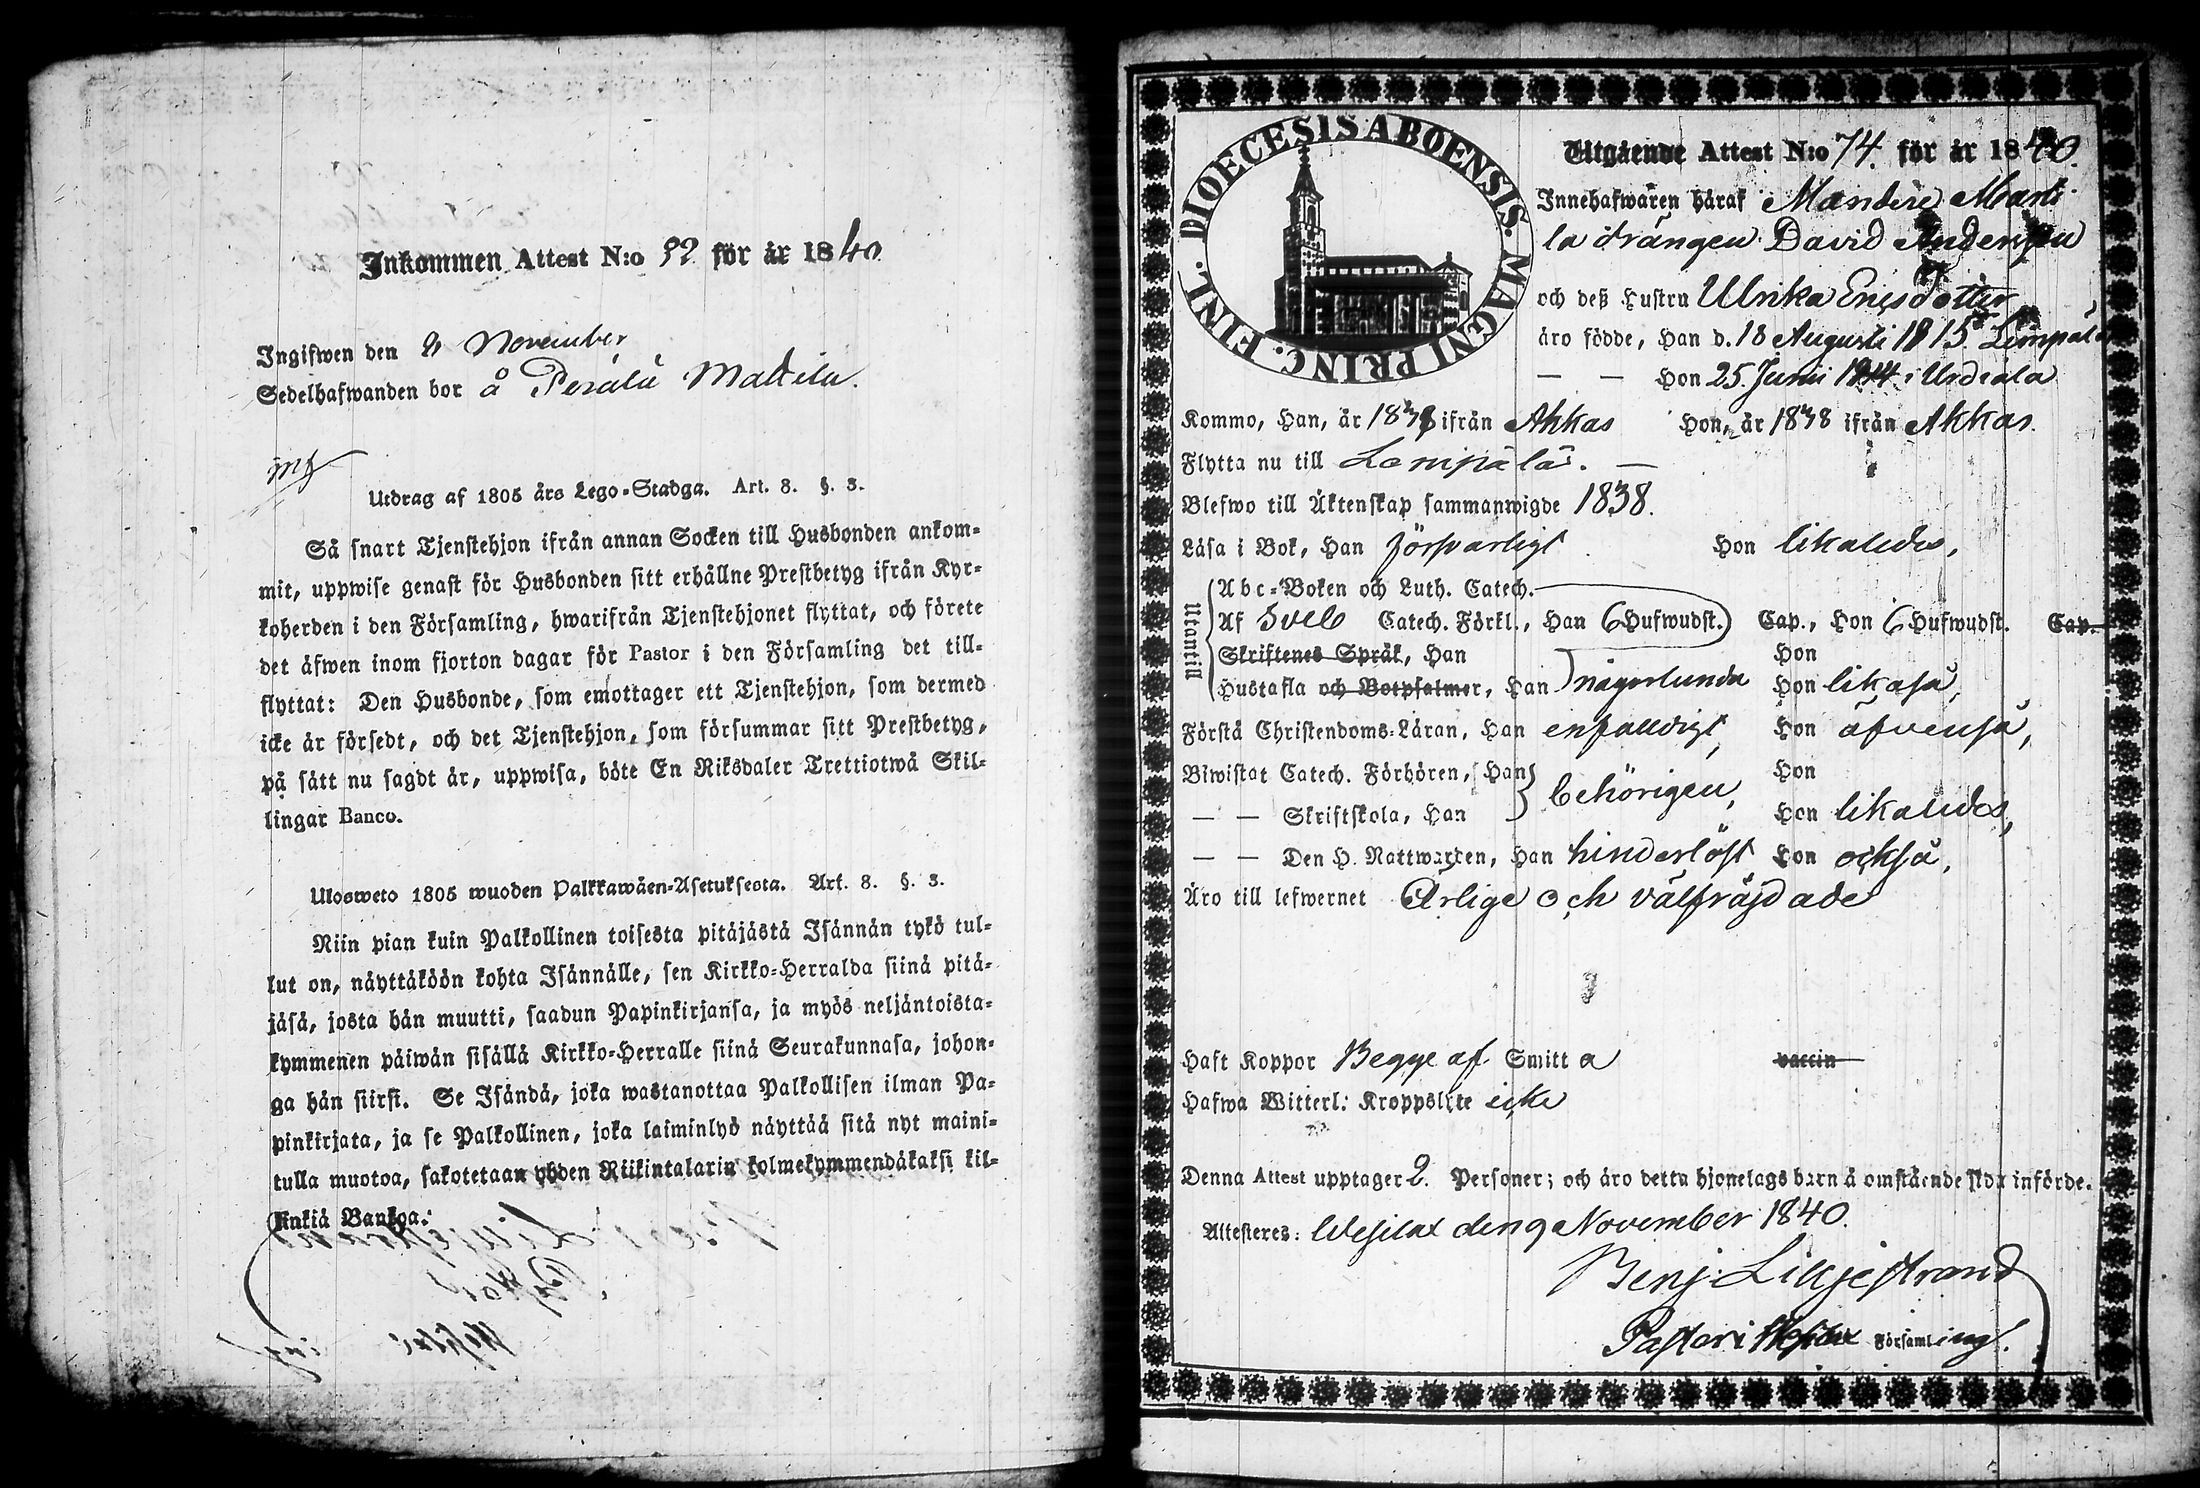 Inkommen Attest N:o 92 för år 1840
Ingifwen den 9 November
Sedelhafwanden bor å Perälä Mattila.
Utdrag af 1805 års Lego-Stadga. Art. 8. §. 3.
Så snart Tjenstehjon ifrån annan Socken till Husbonden ankom-
mit, uppwise genast för Husbonden sitt erhållne Prestbetyg ifrån Kyr-
koherden i den Församling, hwarifrån Tjenstehjonet flyttat, och förete
det äfwen inom fjorton dagar för Pastor i den Församling det till-
flyttat: Den Husbonde, som emottager ett Tjenstehjon, som dermed
icke är försedt, och det Tjenstehjon, som försummar sitt Prestbetyg,
på sätt nu sagdt är, uppwisa, böte En Riksdaler Trettiotwå Skil-
lingar Banco.
Ulosweto 1805 wuoden Palkkawäen-Asetuksesta. Art. 8. §. 3.
Niin pian kuin Palkollinen toisesta pitäjästä Isännän tykö tul-
lut on, näyttäköön kohta Isännälle, sen Kirkko-Herralda siinä pitä-
jäsä, josta hän muutti, saadun Papinkirjansa, ja myös neljäntoista-
kymmenen päiwän sisällä Kirkko-Herralle siinä Seurakunnasa, johon-
ga hän siirsi. Se Isändä, joka wastanottaa Palkollisen ilman Pa-
pinkirjata, ja se Palkollinen, joka laiminlyö näyttää sitä nyt maini-
tulla muotoa, sakotetaan yhden Riikintalarin kolmekymmendäkaksi kil-
linkiä Bankoa.
DIOECESIS ABOENSIS. MAGNI PRINC. FINL.
Utgående Attest N:o 74. för år 1840.
Innehafwaren häraf Mandère Marti
la drängen David Andersson
och deß Hustru Ulrika Ericsdotter
äro födde, Han d. 18 Augusti 1815 Lempälä
— — Hon 25. Junii 1814 i Urdiala
Kommo, Han, år 1838 ifrån Akkas Hon, år 1838 ifrån Akkas.
Flytta nu till Lempälä. —
Blefwo till Äktenskap sammanwigde 1838.
Läsa i Bok, Han försvarligt Hon likaledes,
Utantill
Abc-Boken och Luth. Catech.
Af Sveb Catech. Förkl., Han 6 Hufwudst. Cap., Hon 6 Hufwudst. Cap.
Skriftenes Språk, Han Hon
Hustafla och Botpsalmer, Han någorlunda Hon likaså,
Förstå Christendoms-Läran, Han enfaldigt, Hon äfvenså,
Biwistat Catech. Förhören, Han Hon
behörigen,
— — Skriftskola, Han Hon likaledes,
— — Den H. Nattwarden, Han hinderlöst Hon också,
Äro till lefwernet Ärlige och välfräjdade
Haft Koppor Begge af Smitt a vaccin
Hafwa Witterl: Kroppslyte icke
Denna Attest upptager 2. Personer; och äro detta hjonelags barn å omstående sida införde.
Attesteres: Wesilax den 9 November 1840.
Benj. Lilljestrand
Pastor i Wesilax Församling.